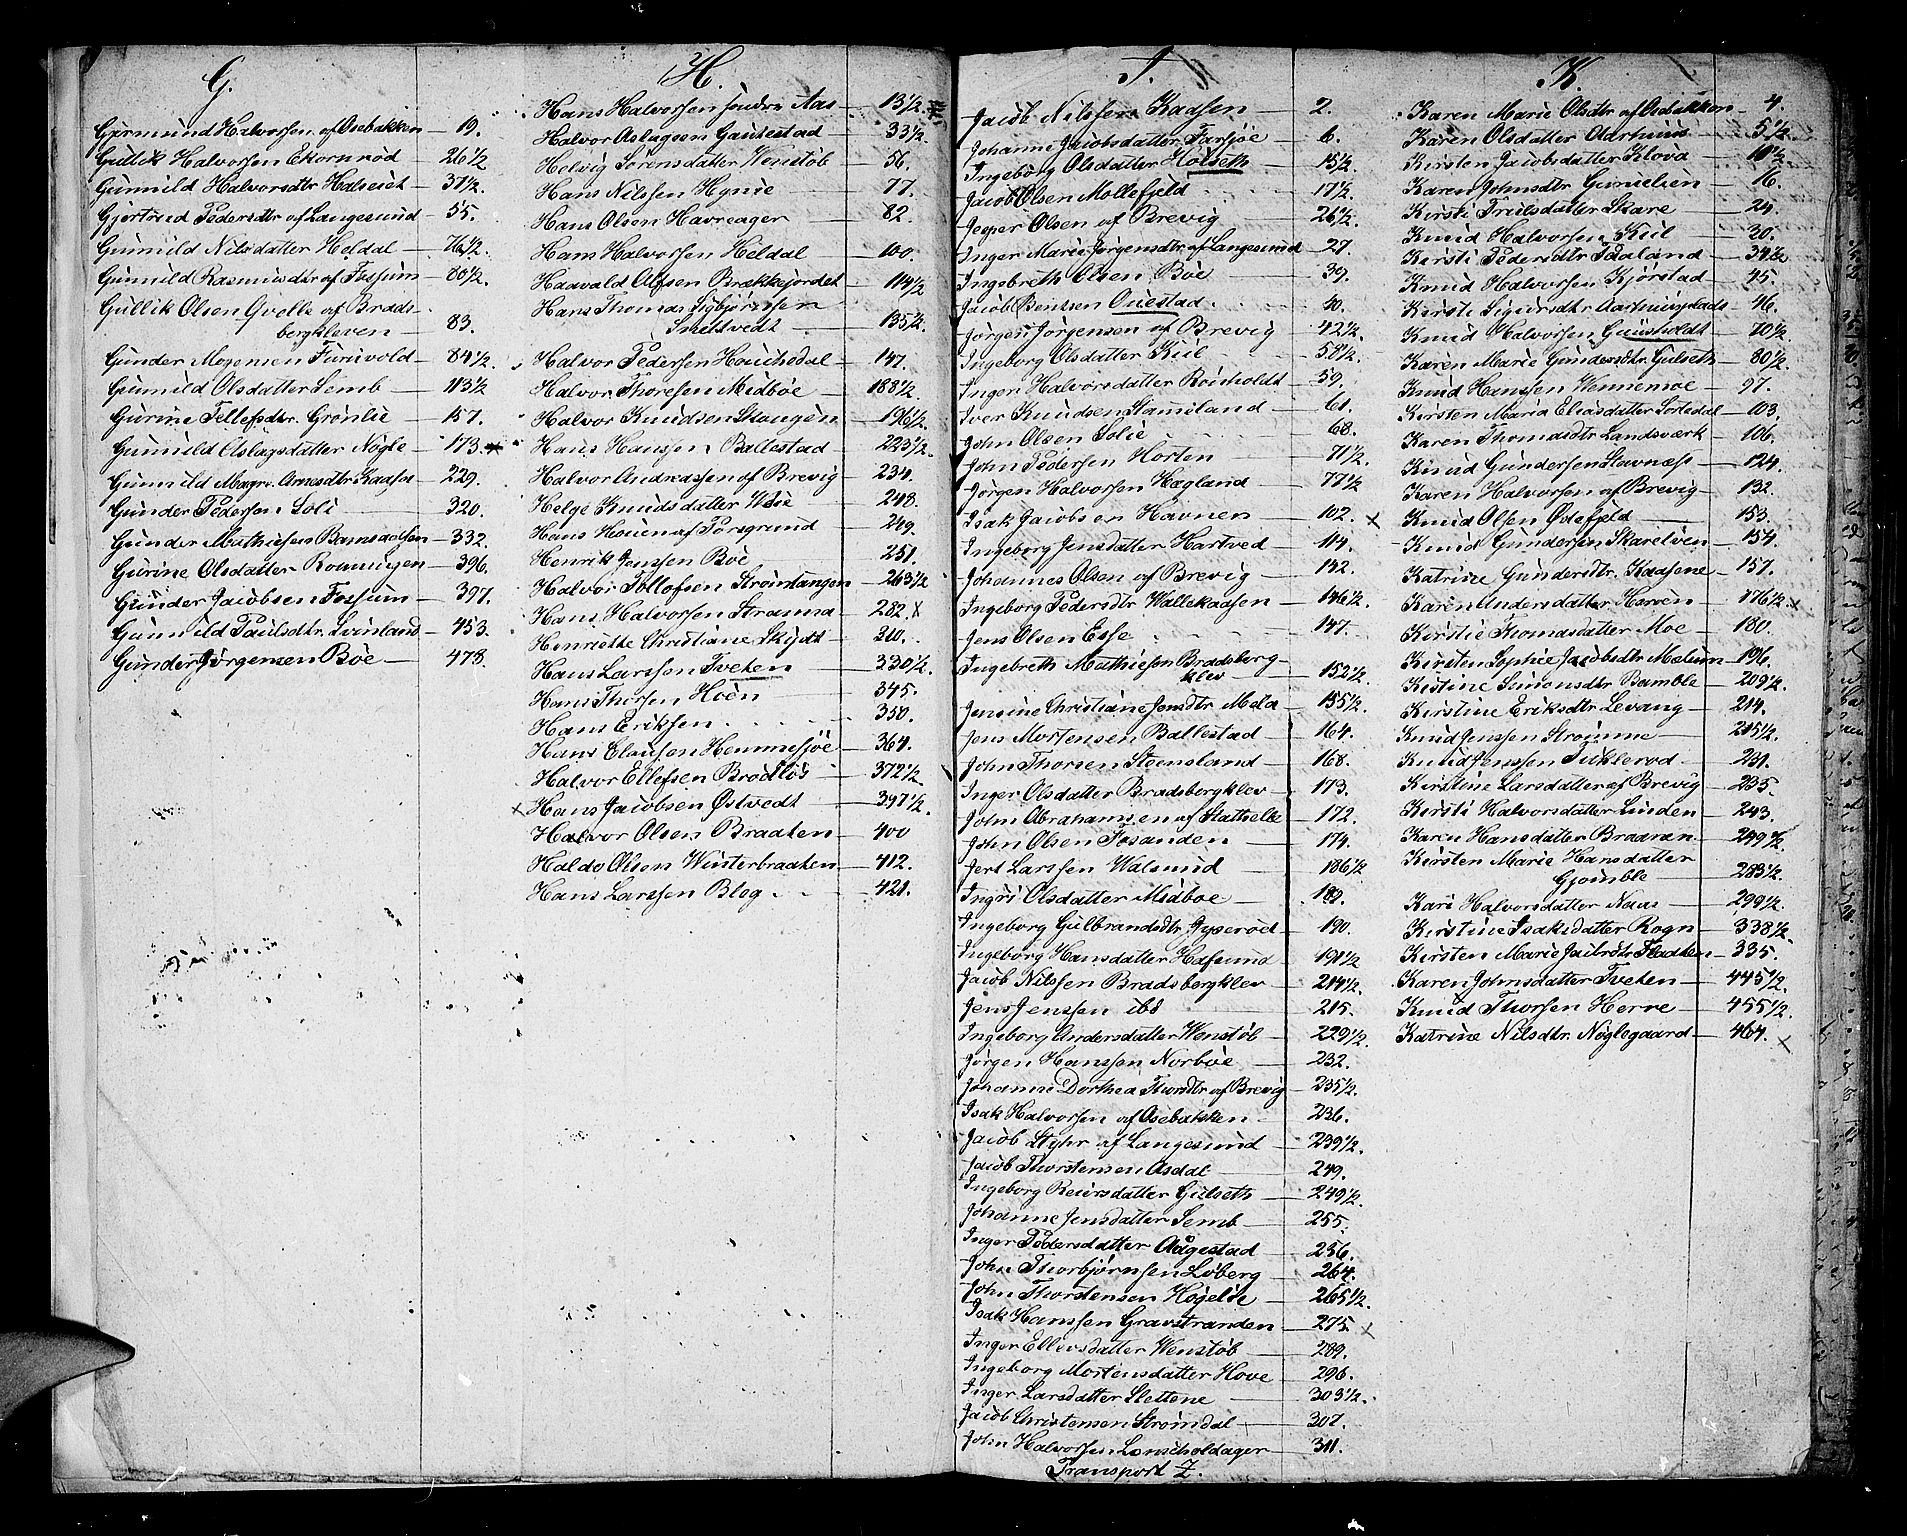 G.
Gjermund Halvorsen af Osebakken 19.
Gullik Halvorsen Ekornrød 26 1/2
Gunnild Halvorsdtr Halseiet 37 1/2.
Gjertrud Pedersdtr af Langesund 55.
Gunnild Nilsdatter Heldal 76 1/2
Gunnild Rasmusdtr af Fossum 80 1/2.
Gullik Olsen Qvelle af Brads-
bergkleven 83.
Gunder Mogensen Furuvold 84 1/2.
Gunnild Olsdatter Semb 113 1/2
Gurine Tellefsdtr. Grønlie 157.
Gunnild Aslagsdatter Nøgle 173.
Gunnild Magr. Arnesdtr Kaasa 229.
Gunder Pedersen Soli 320.
Gunder Mathiesen Bamsdalsen 332.
Gurine Olsdatter Rønningen 396.
Gunder Jacobsen Fossum 397.
Gunnild Paulsdtr. Svinland 453.
Gunder Jørgensen Bøe 478.
H.
Hans Halvorsen søndre Aas 13 1/2.
Halvor Aslagsen Gautestad 33 1/2.
Helvig Sørensdatter Wenstøb 56.
Hans Nilssen Hynie 77.
Hans Olsen Havreager 82.
Hans Halvorsen Heldal 100.
Haavald Olsen Brækkejordet 114 1/2
Hans Thomas Sigbjørnsen
Smidtvedt 135 1/2.
Halvor Pedersen Houchedal 147.
Halvor Thoresen Midbøe 188 1/2.
Halvor Knudsen Skaugen 196 1/2.
Hans Hanssen Ballestad 223 1/2.
Halvor Andreassen af Brevig 234.
Helge Knudsdatter Wøie 248.
Hans Houen af Porsgrund 249.
Henrik Jenssen Bøe 251.
Halvor Tollofsen Strømtangen 263 1/2
Hans Halvorsen Stranna 282. x
Henriette Christiane Skydt 310.
Hans Larssen Tveten 330 1/2.
Hans Thorsen Hoen 345.
Hans Eriksen 350.
Hans Clausen Hemmesjøe 364.
Halvor Ellefsen Brødløs 372 1/2
x Hans Jacobsen Østvedt 397 1/2.
Halvor Olsen Braaten 400
Haldo Olsen Winterbraaten 412.
Hans Larssen Bleg 421.
J.
Jacob Nilssen Kaasen 2.
Johanne Jacobsdatter Farsjøe 6.
Ingeborg Olsdatter Holseth 15 1/2.
Jacob Olsen Mollefjeld 17 1/2.
Jesper Olsen af Brevig 26 1/2.
Inger Marie Jørgensdtr af Langesund 27.
Ingebreth Olsen Bøe 39.
Jacob Bentsen Ouestad 40.
Jørgen Jørgensen af Brevig 42 1/2.
Ingeborg Olsdatter Kiil 58 1/2.
Inger Halvorsdatter Rønholdt 59.
Iver Knudsen Stamland 61.
John Olsen Solie 68.
John Pedersen Horten 71 1/2.
Jørgen Halvorsen Hægland 77 1/2
Isak Jacobsen Havnen 102. x
Ingeborg Jensdatter Hartved 114.
Johannes Olsen af Brevig 142.
Ingeborg Pedersdtr Wallekaasen 146 1/2.
Jens Olsen Esse 147.
Ingebreth Mathiesen Bradsberg-
klev 152 1/2.
Jensine Christiane Jensdtr Melø 155 1/2.
Jens Mortensen Ballestad 164.
John Thorsen Steensland 168.
Inger Olsdatter Bradsbergklev 173.
John Abrahamsen af Stathelle 172.
John Olsen Fosanden 174.
Jert Larssen Walsund 186 1/2
Ingri Olsdatter Midbøe 189.
Ingeborg Gulbrandsdtr Gyserød 190.
Ingeborg Hansdatter Hafsund 191 1/2
Jacob Nilssen Bradsbergklev 214 1/2.
Jens Jenssen ibd 215.
Ingeborg Andersdatter Wenstøb 229 1/2.
Jørgen Hanssen Norbøe 232.
Johanne Dorthea Thorsdtr af Brevig 235 1/2.
Isak Halvorsen af Osebakken 236.
Jacob Styhr af Langesund 239 1/2.
Jacob Thorstensen Asdal 249.
Ingeborg Reiersdatter Gulseth 249 1/2
Johanne Jensdatter Semb 255.
Inger Pedersdatter Aagestad 256.
John Thorbjørnsen Løberg 264.
John Thorstensen Høgelie 265 1/2
Isak Hanssen Gravstranden 275. x
Inger Ellevsdatter Wenstøb 289.
Ingeborg Mortensdatter Hove 296.
Inger Larsdatter Slettene 303 1/2.
Jacob Christensen Strømdal 307.
John Halvorsen Lønscholdager 311.
Transport Z.
K.
Karen Marie Olsdtr af Osebakken 4.
Karen Olsdatter Aarhuus 5 1/2.
Kirsten Jacobsdatter Klova 10 1/2
Karen Johnsdtr Gunielsen 16.
Kirsti Truilsdatter Skare 24.
Knud Halvorsen Kiil 30.
Kirsti Pedersdtr Paaland 34 1/2
Knud Halvorsen Kjørstad 45.
Kirsti Sigursdtr Aarhuusplads 46.
Knud Halvorsen Gunsholdt 70 1/2.
Karen Marie Gundersdtr Gulseth 80 1/2.
Knud Hanssen Wennemoe 97.
Kirsten Maria Eliasdatter Sortedal 103.
Karen Thomasdtr Landsværk 106.
Knud Gundersen Stavnæss 124.
Karen Halvorssen af Brevig 132.
Knud Olsen Ødefjeld 153.
Knud Gundersen Skarelven 154.
Katrine Gundersdtr. Kaasene 157.
Karen Andersdatter Herøen 176 1/2. x
Kirstie Thomasdatter Moe 180.
Kirsten Sophie Jacobsdtr Mælum 196.
Kirstine Simonsdtr Bamble 209 1/2.
Kirstine Eriksdtr Levang 214.
Knud Jenssen Strømme 215 1/2.
Knud Jenssen Tuklerød 231.
Kirstine Larsdatter af Brevig 235.
Kirsti Halvorsdatter Linden 243.
Karen Hansdatter Braaran 249 1/2.
Kirsten Marie Hansdatter
Gjømble 283 1/2.
Kari Halvorsdatter Naus 299 1/2.
Kirstine Isaksdatter Rogn 338 1/2.
Kirsten Marie Jacobsdtr Fladten 335.
Karen Johnsdatter Tveten 445 1/2.
Knud Thorsen Herre 455 1/2
Katrine Nilsdtr. Nøglegaard 464. x